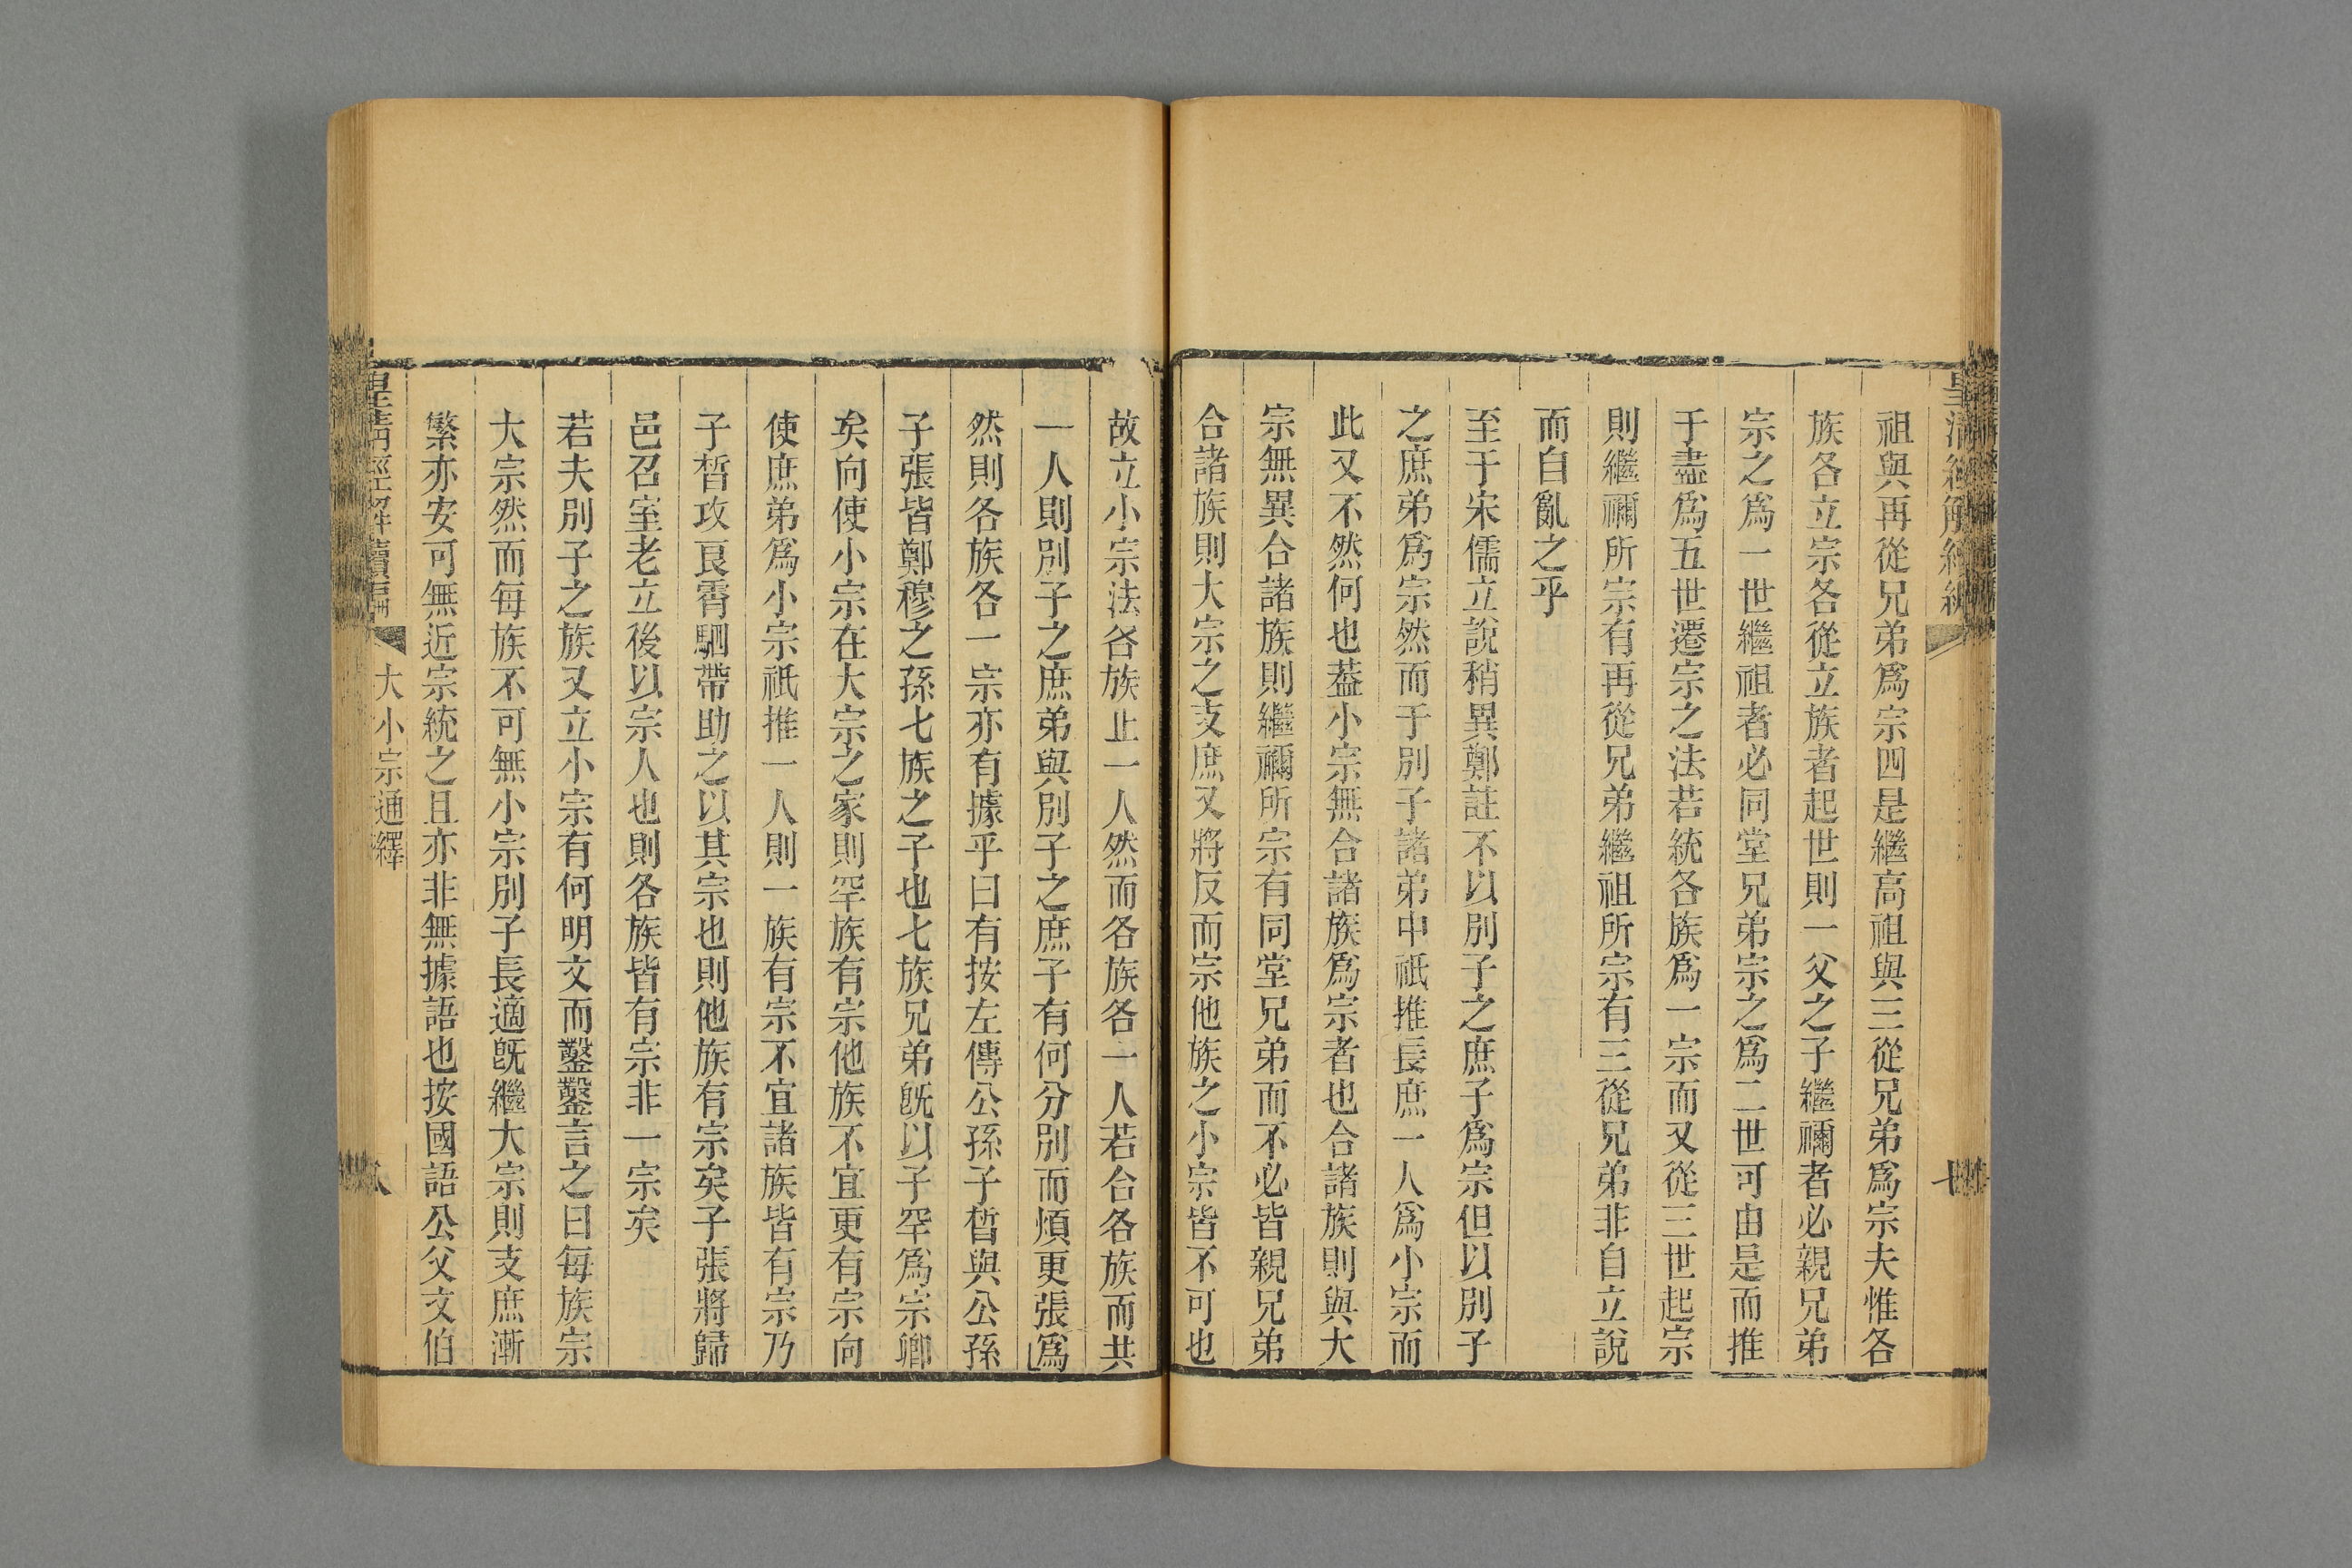 祖與再從兄弟爲宗四是繼高祖與三從兄弟爲宗夫惟各
族各立宗各從立族者起世則一父之子繼禰者必親兄弟
宗之爲一世繼祖者必同堂兄弟宗之爲二世可由是而推
于盡爲五世遷宗之法若統各族爲一宗而又從三世起宗
則繼禰所宗有再從兄弟繼祖所宗有三從兄弟非自立說
而自亂之乎
至于宋儒立說稍異鄭註不以別子之庶子爲宗但以別子
之庶弟爲宗然而于別子諸弟中祇推長庶一人爲小宗而
此又不然何也葢小宗無合諸族爲宗者也合諸族則與大
宗無異合諸族則繼禰所宗有同堂兄弟而不必皆親兄弟
合諸族則大宗之支庶又將反而宗他族之小宗皆不可也
故立小宗法各族止一人然而各族各一人若合各族而共
一人則別子之庶弟與別子之庶子有何分別而煩更張爲
然則各族各一宗亦有據乎曰有按左傳公孫子晳與公孫
子張皆鄭穆之孫七族之子也七族兄弟旣以子罕爲宗卿
矣向使小宗在大宗之家則罕族有宗他族不宜更有宗向
使庶弟爲小宗祇推一人則一族有宗不宜諸族皆有宗乃
子晳攻良霄駟帶助之以其宗也則他族有宗矣子張將歸
邑召室老立後以宗人也則各族皆有宗非一宗矣
若夫別子之族又立小宗有何明文而鑿鑿言之曰每族宗
大宗然而每族不可無小宗別子長適旣繼大宗則支庶漸
繁亦安可無近宗統之且亦非無據語也按國語公父文伯
皇清經解續編 大小宗通繹 八